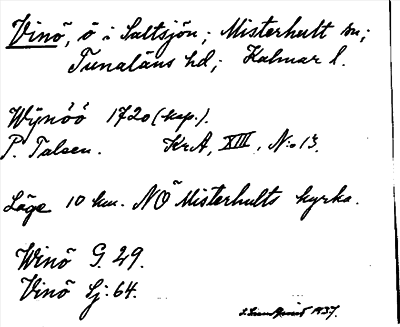 Vinö, ö i Saltsjön; Misterhult sn;
Tunaläns hd; Kalmar l.
Wÿnöö 1720 (kop.).
P. Talsen. KrA, XIII, N:o 13.
Läge 10 km. NÖ Misterhults kyrka.
Winö G. 29.
Vinö Sj. 64.
1937.